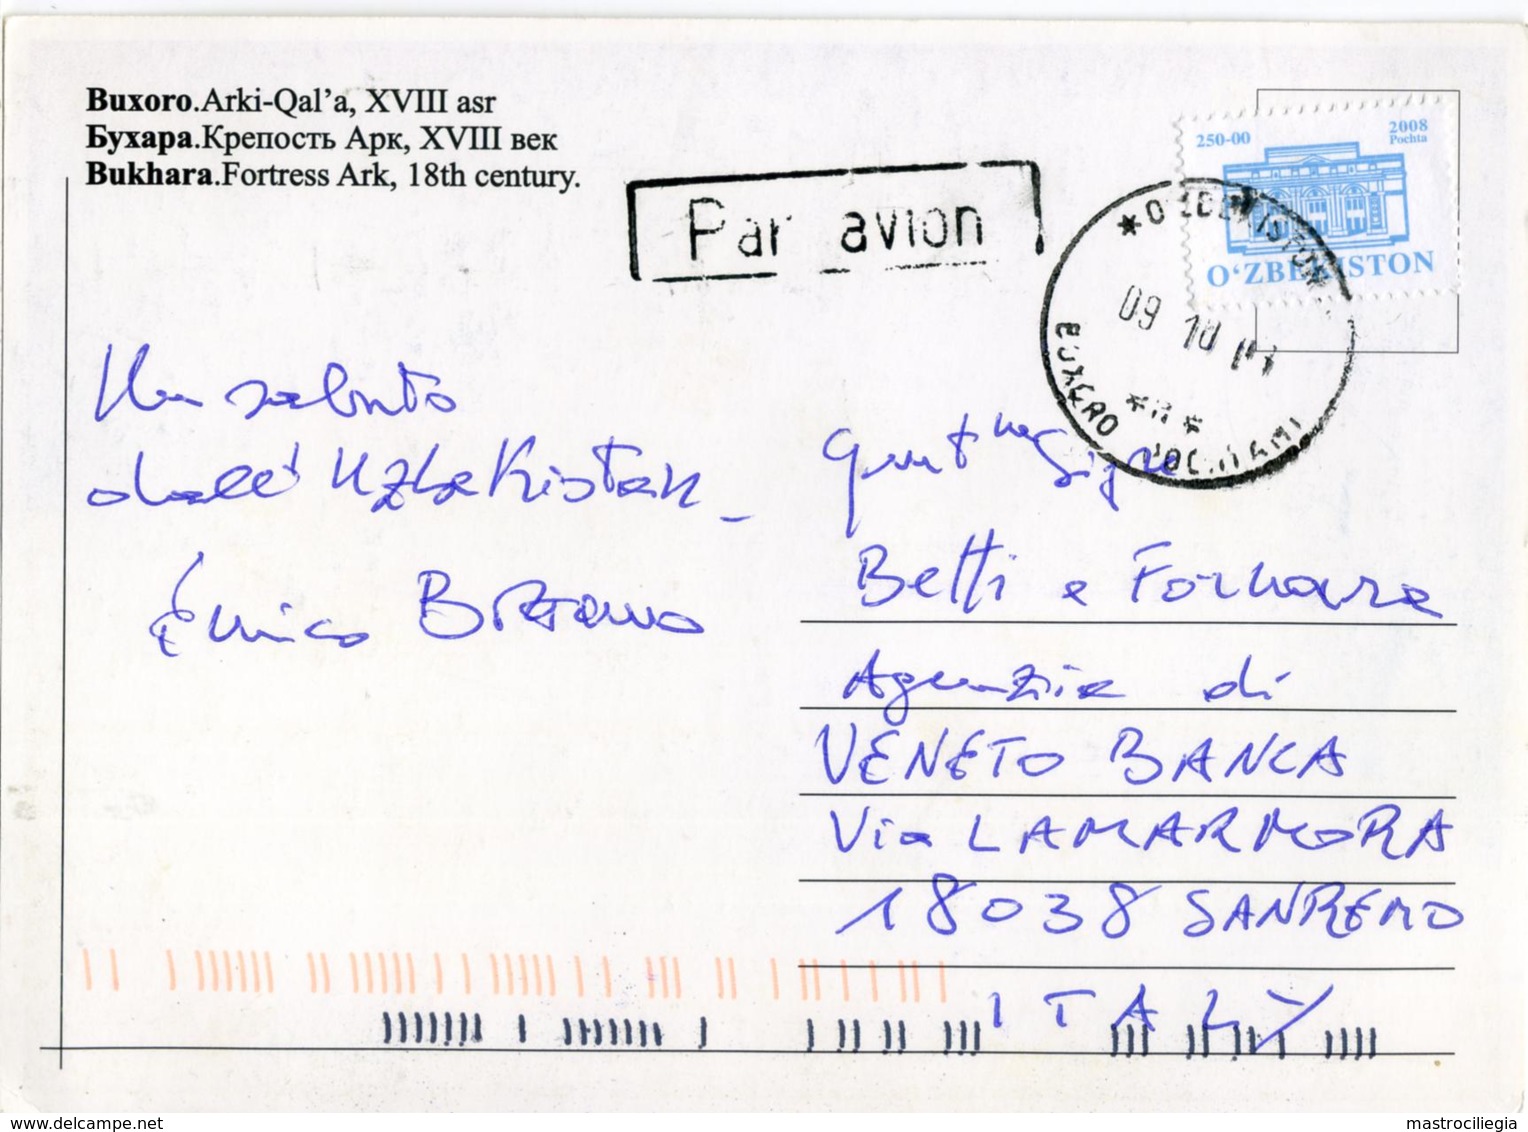 Buxoro.Arki-Qal'a, XVIII asr
Бухара.Крепость Арк, XVIII век
Bukhara.Fortress Ark, 18th century.
Par avion
250-00
2008
Pochta
O‘ZBEKISTON
*O'ZBEKISTON
09 10
BUXORO
Un saluto
dall' Uzbekistan
Enrico
Betti e Fornara
Agenzia di
VENETO BANCA
Via LAMARMORA
18038 SANREMO
ITALY
delcampe.net
mastrociliegia